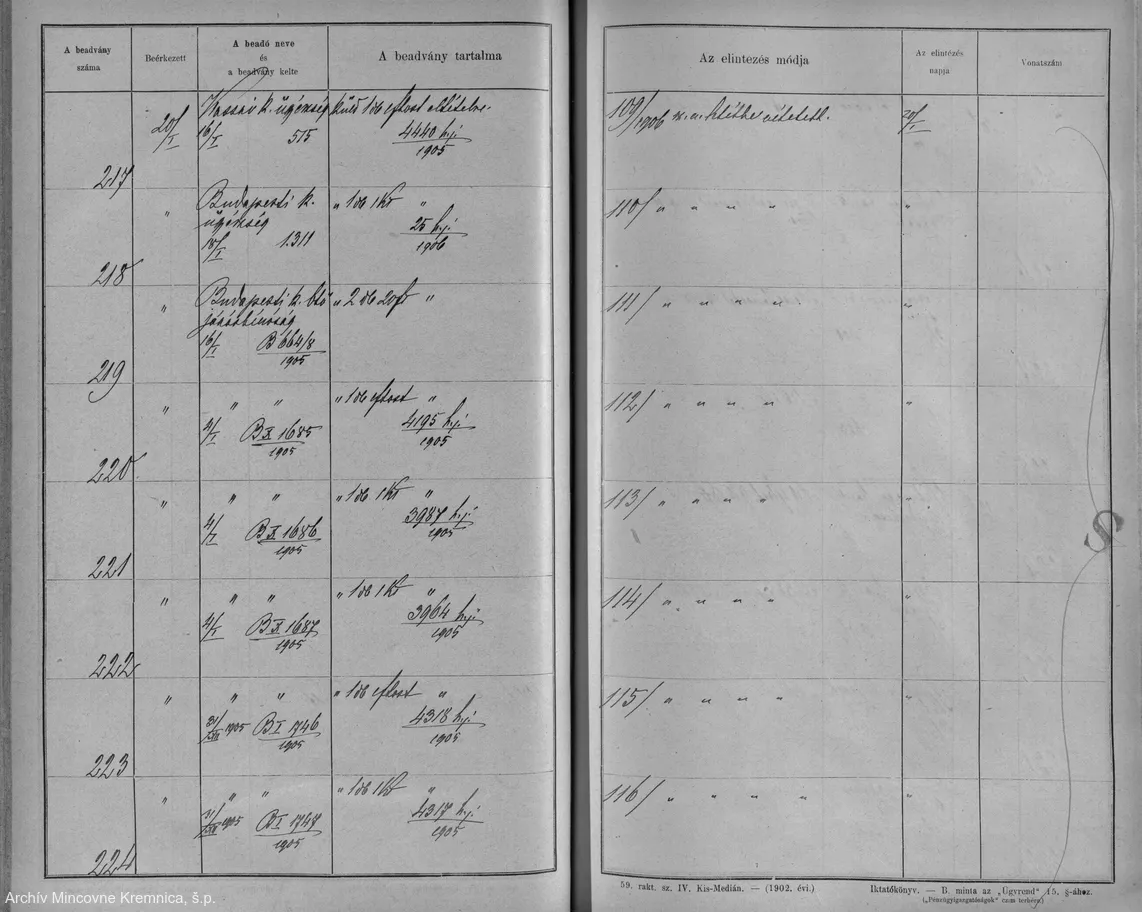 A beadvány
száma
Beérkezett
A beadó neve
és
a beadvány kelte
A beadvány tartalma
Az elintézés módja
Az elintézés
napja
Vonatszám
217
20/I
k. ügyészség
16/I 575
küld 1 db
4440 hji
1905
109/1906
20/I
218
"
Budapesti k.
ügyészség
18/I 1311
" 1 db 1 Kr "
25 hji
1906
110/ " " " "
"
219
"
Budapesti k.
16/I B 664/8
1905
" 2 db 20 "
111/ " " " "
"
220
"
" "
4/I B X 1685
1905
" 1 db "
4195 hji
1905
112/ " " " "
"
221
"
" "
4/I B X 1686
1905
" 1 db 1 Kr "
3987 hji
1905
113/ " " " "
"
222
"
" "
4/I B X 1687
1905
" 1 db 1 Kr "
3964 hji
1905
114/ " " " "
"
223
"
" "
31/XII 1905 B I 1746
1905
" 1 db "
4318 hji
1905
115/ " " " "
"
224
"
" "
31/XII 1905 B I 1747
1905
" 1 db 1 Kr "
4317 hji
1905
116/ " " " "
59. rakt. sz. IV. Kis-Medián. — (1902. évi.)
Iktatókönyv. — B. minta az „Ügyrend" 15. §-ához.
(„Pénzügyigazgatóságok" czim terhére.)
Archív Mincovne Kremnica, š.p.